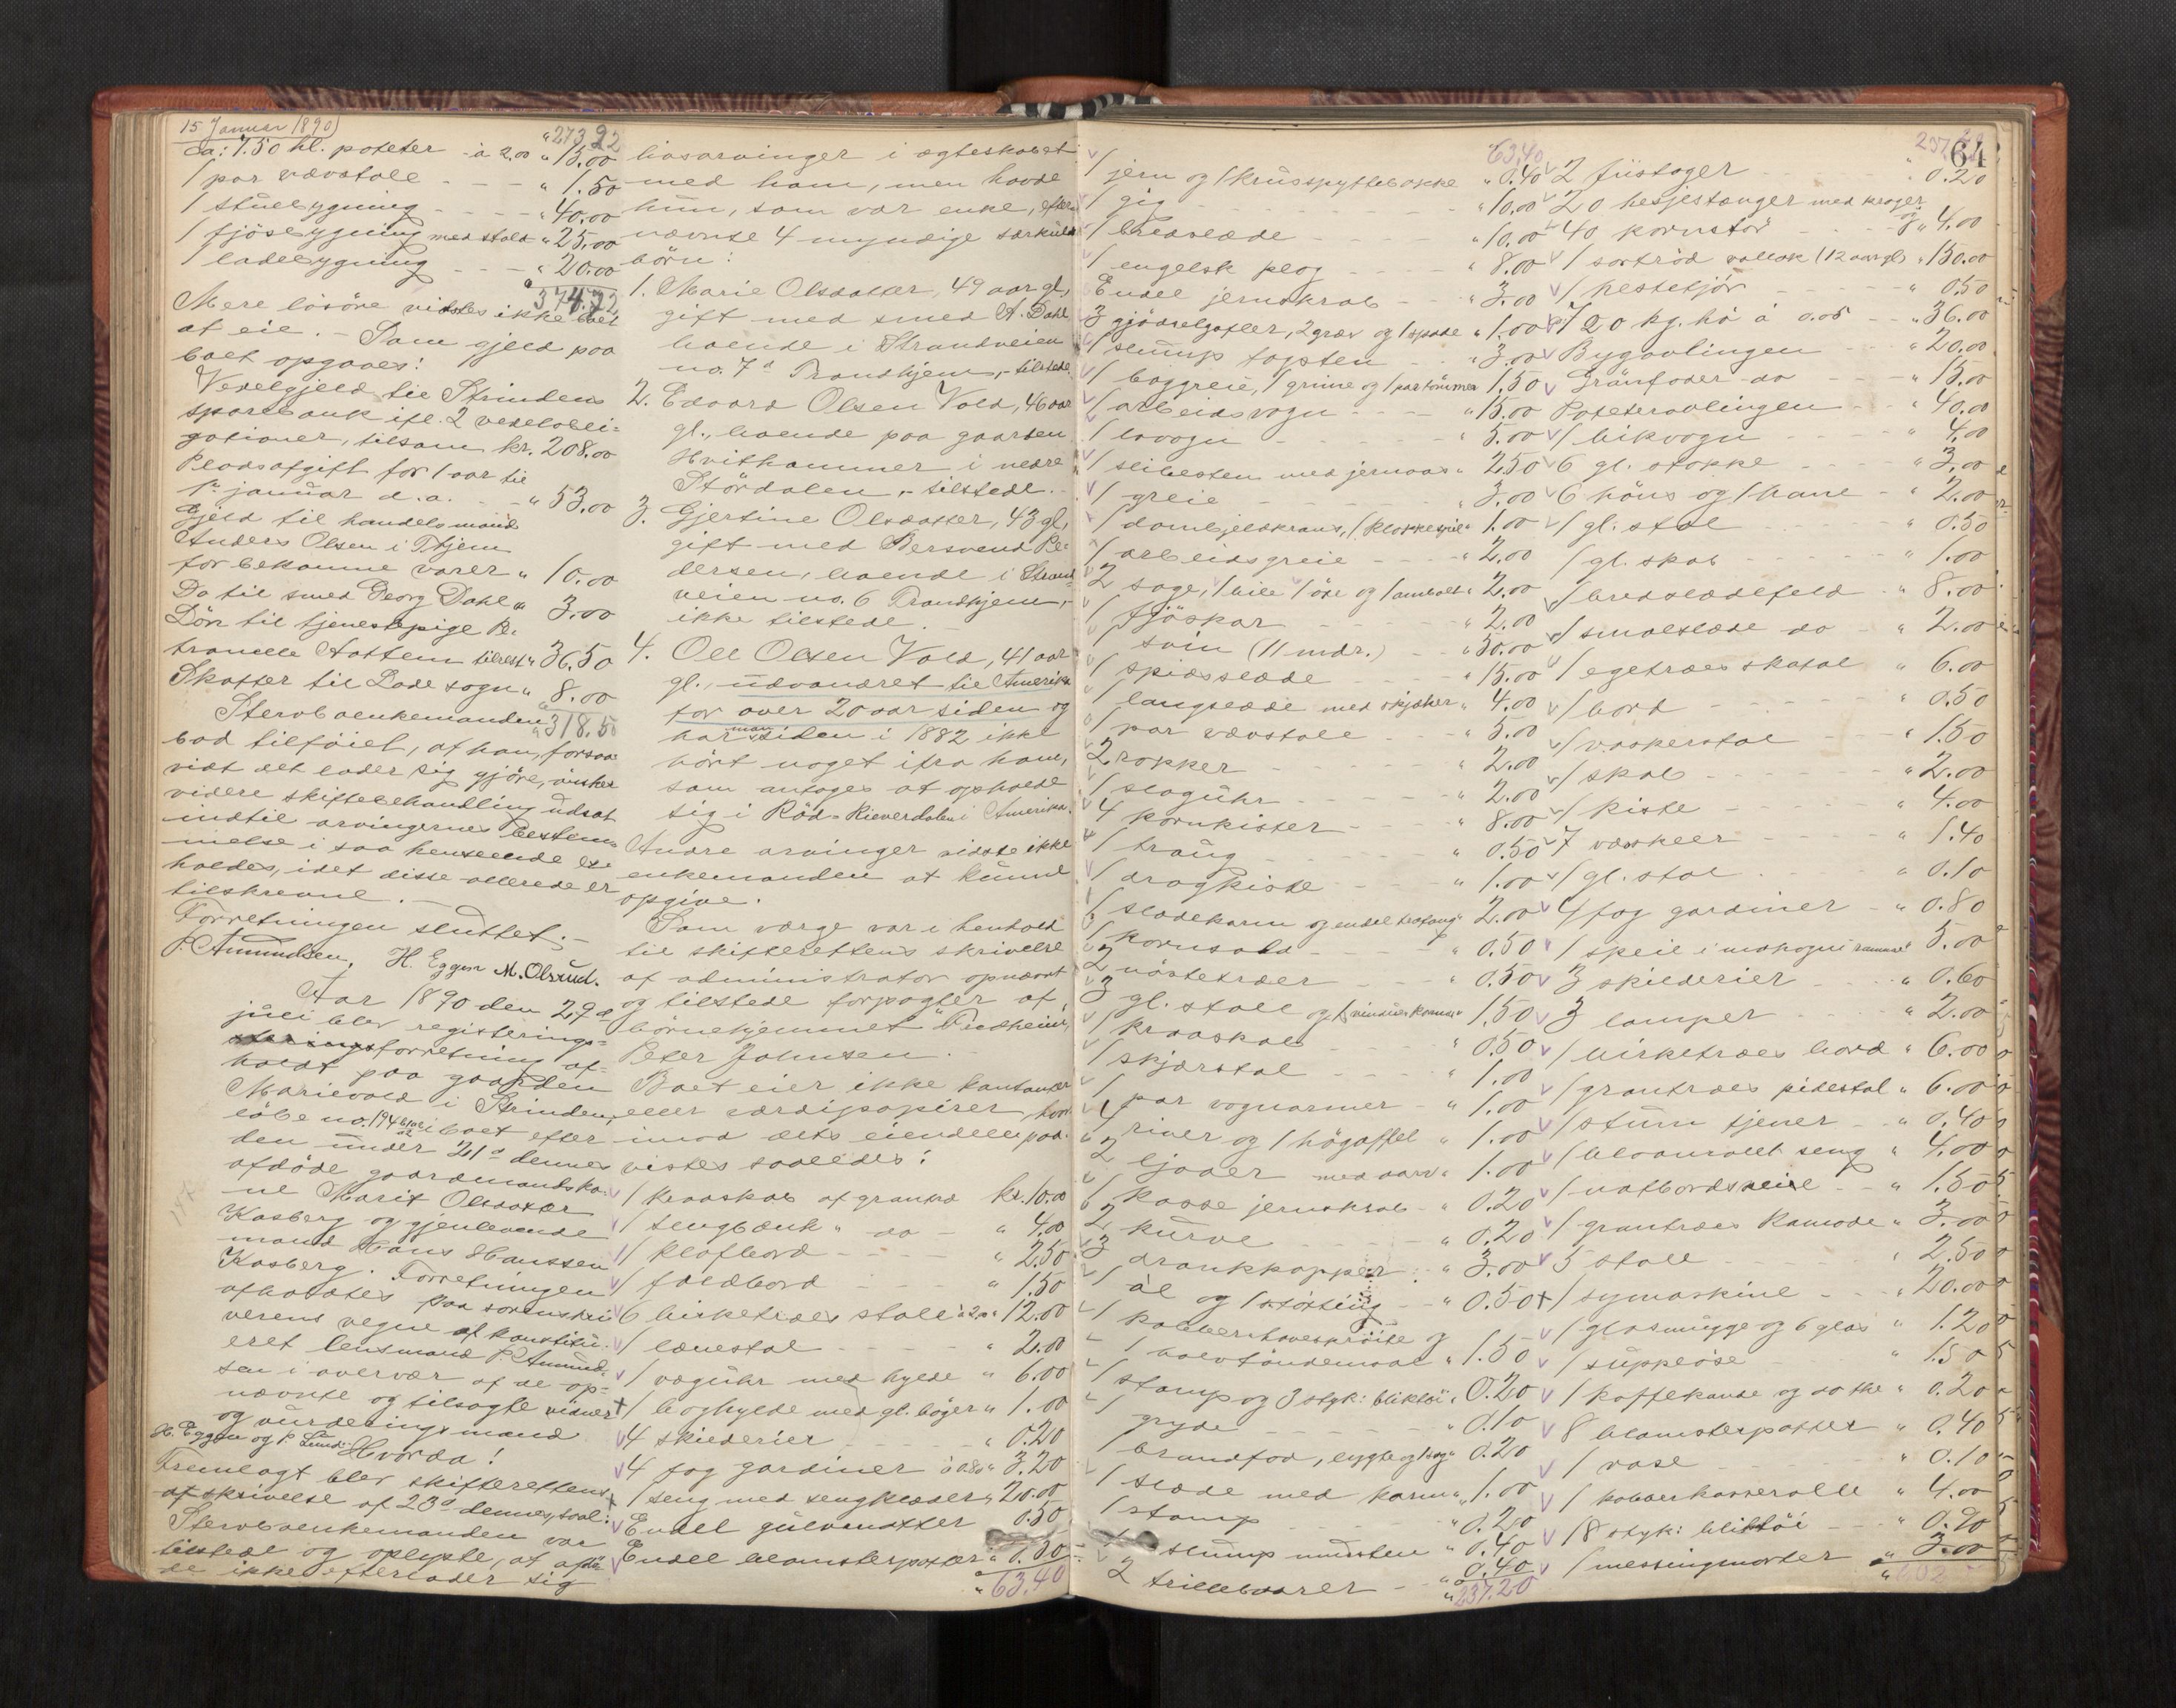 15 Januar 1890
" 273.22
ca: 7.50 hl. poteter - à 2.00 " 15.00
1 par vævstole - - - " 1.50
1 stuebygning - - - " 40.00
1 fjösbygning med stald " 25.00
1 ladebygning - - - " 20.00
374.72
Mere lösöre vidstes ikke boet
at eie. - Som gjeld paa
boet opgaves:
Vexelgjeld til Strindens
sparebank ifl. 2 vexelobli=
gationer, tilsam kr. 208.00
Pladsafgift for 1 aar til
1ste januar d.a. - - " 53.00
Gjeld til handelsmand
Anders Olsen i Thjem
for bekomne varer " 10.00
Do til smed Georg Dahl " 3.00
Lön til tjenestepige Pe=
tronelle Hattem tilrest " 36.50
Skatter til Lade sogn " 8.00
" 318.50
Stervboenkemanden
bad tilföiet, at han, forsaa
vidt det lader sig gjöre, önsker
videre skiftebehandling udsat
indtil arvingernes bestem=
melse i saa henseende er
holdes, idet disse allerede er
tilskrevne. -
Forretningen sluttet. -
P. Amundsen, H. Eggen M. Olsrud.
Aar 1890 den 29de
juli blev registerings=
forretning af=
holdt paa gaarden
Marievold i Strinden,
löbe no. 194 i boet efter
den under 21de dennes
afdöde gaardmandsko=
ne Marit Olsdatter
Kasberg og gjenlevende
mand Hans Hanssen
Kasberg. Forretningen
afholdtes paa sorenskri
verens vegne af konstitu=
eret lensmand P. Amund
sen i overvær af de op=
nævnte og tilsagte vidner
og vurderingsmænd
H. Eggen og P. Lund. Hvorda!
Fremlagt blev skifterettens
skrivelse af 23de dennes, saal:
Stervboenkemanden var
tilstede og oplyste, at afdö
de ikke efterlader sig
livsarvinger i ægteskabet
med ham, men havde
hun, som var enke, efter
nævnte 4 myndige særkuld
börn:
1. Marie Olsdatter, 49 aar gl,
gift med smed A. Dahl,
boende i Strandveien
no. 7d Trondhjem, - tilstede.
2. Edvard Olsen Vold, 46 aar
gl., boende paa gaarden
Hvithammer i nedre
Stördalen, - tilstede. -
3. Gjertine Olsdatter, 43 gl,
gift med Bersvend Pe=
dersen, boende i Strand=
veien no. 6 Trondhjem, -
ikke tilstede. -
4. Ole Olsen Vold, 41 aar
gl., udvandret til Amerika
for over 20 aar siden og
har man siden i 1882 ikke
hört noget ifra ham,
som antages at opholde
sig i Röd=Rieverdalen i Amerika.
Andre arvinger vidste ikke
enkemanden at kunne
opgive.
Som værge var i henhold
til skifterettens skrivelse
af administrator opnævnt
og tilstede forpagter af
börnehjemmet "Fredheim",
Peter Johnsen. -
Boet eier ikke kontanter
eller værdipapirer, der
imod dets eiendele paa=
vistes saaledes:
1 klædskab af grantræ kr. 10.00
1 sengbænk " do - " 4.00
1 klafbord - - - " 2.50
1 foldbord - - - " 1.50
6 birketræes stole à 2.00 " 12.00
1 lænestol - - - " 2.00
1 væguhr med hylde " 6.00
1 boghylde med gl. böger " 1.00
4 skilderier - - - " 0.20
4 fag gardiner à 0.80 " 3.20
1 seng med sengklæder " 20.00
Endel gulvmatter 0.50
Endel blomsterpotter " 0.50
" 63.40
63,40
1 jern og 1 krusspyttebakke " 0.40
1 gig - - - " 10.00
1 bredslæde - - - " 10.00
1 engelsk plog - - " 8.00
Endel jernskrab - - " 3.00
3 gjödselgafler, 2 græv og 1 spade " 1.00
1 slump tagsten - - " 3.00
1 baggreie, 1 grime og 1 par tömmer 1.50
1 arbeidsvogn - - - " 15.00
1 lavogn - - - " 5.00
1 slibesten med jernaas " 2.50
1 greie - - - " 3.00
1 dombjeldkrans, 1 klokkespil " 1.00
1 arbeidsgreie - - " 2.00
2 sage, 1 bile 1 öxe og 1 ambolt " 2.00
1 fjöskar - - - " 2.00
1 svin (11 mdr.) - " 30.00
1 spidsslæde - - " 15.00
1 langslæde med skjæker " 4.00
1 par vævstole - - " 5.00
2 rokker - - - " 2.00
1 slaguhr - - - " 2.00
4 kornkister - - " 8.00
1 traug - - - " 0.50
1 dragkiste - - - " 1.00
1 slædekarm og endel 2.00
1 kornsold - - " 0.50
2 nöstetræer " 0.50
3 gl. stole og 1 vindueskarm " 1.50
1 kraaskab " 0.50
1 skjærstol - " 1.00
1 par vognarmer - " 1.00
4 river og 1 högaffel " 1.00
2 ljaaer med aarv " 1.00
1 kasse jernskrab - " 0.20
2 kurve - - " 0.20
3 drankkopper - " 3.00
1 ål og 1 störting - " 0.50
1 kobber og
1 halvtöndemaal " 1.50
1 stamp og 3 styk: bliktöi " 0.20
1 gryde - - - " 0.10
1 brandfod, lygte og 1 sag " 0.20
1 slæde med karm " 1.00
1 stamp - - - " 0.20
1 slump mursten " 0.40
2 trillebaarer - - " 0.40
" 237.20
237.20
64
2 fustager - " 0.20
20 hesjestænger med kroger
og
40 kornstör - - - " 4.00
1 sortröd vallak (12 aar gl) " 150.00
1 hestetjör - - - " 0.50
720 kg. hö à 0.05 - - " 36.00
Bygavlingen - - " 20.00
Grönfoder do - - " 15.00
Poteteravlingen - - " 40.00
1 bikvogn - - " 4.00
6 gl. stokke - - " 3.00
6 höns og 1 hane - " 2.00
1 gl. stol - " 0.50
1 gl. skab - - " 1.00
1 bredslædefeld - " 8.00
1 smalslæde do - " 2.00
1 egetræes skatol " 6.00
1 bord - - - " 0.50
1 vaskerstol - - " 1.50
1 skab - - - " 2.00
1 kiste - - - " 4.00
7 væskeer - - - " 1.40
1 gl. stol - - " 0.10
4 fag gardiner - " 0.80
1 speil i mahogni ramme " 5.00
3 skilderier - - " 0.60
3 lamper - - " 2.00
1 birketræes bord " 6.00
1 grantræes pidestal " 6.00
1 stum tjener - " 0.40
1 blaamalet seng " 4.00
1 natbordsveile - " 1.50
1 grantræes kamode " 3.00
5 stole - - " 2.50
1 symaskine - - " 20.00
1 glasmugge og 6 glas " 1.20
1 suppeöse " 1.50
1 kaffekande og do the " 0.20
8 blomsterpotter " 0.40
1 vase - - " 0.10
1 kobberkasserolle " 4.00
18 styk: bliktöi - " 0.90
1 messingmorter " 3.00